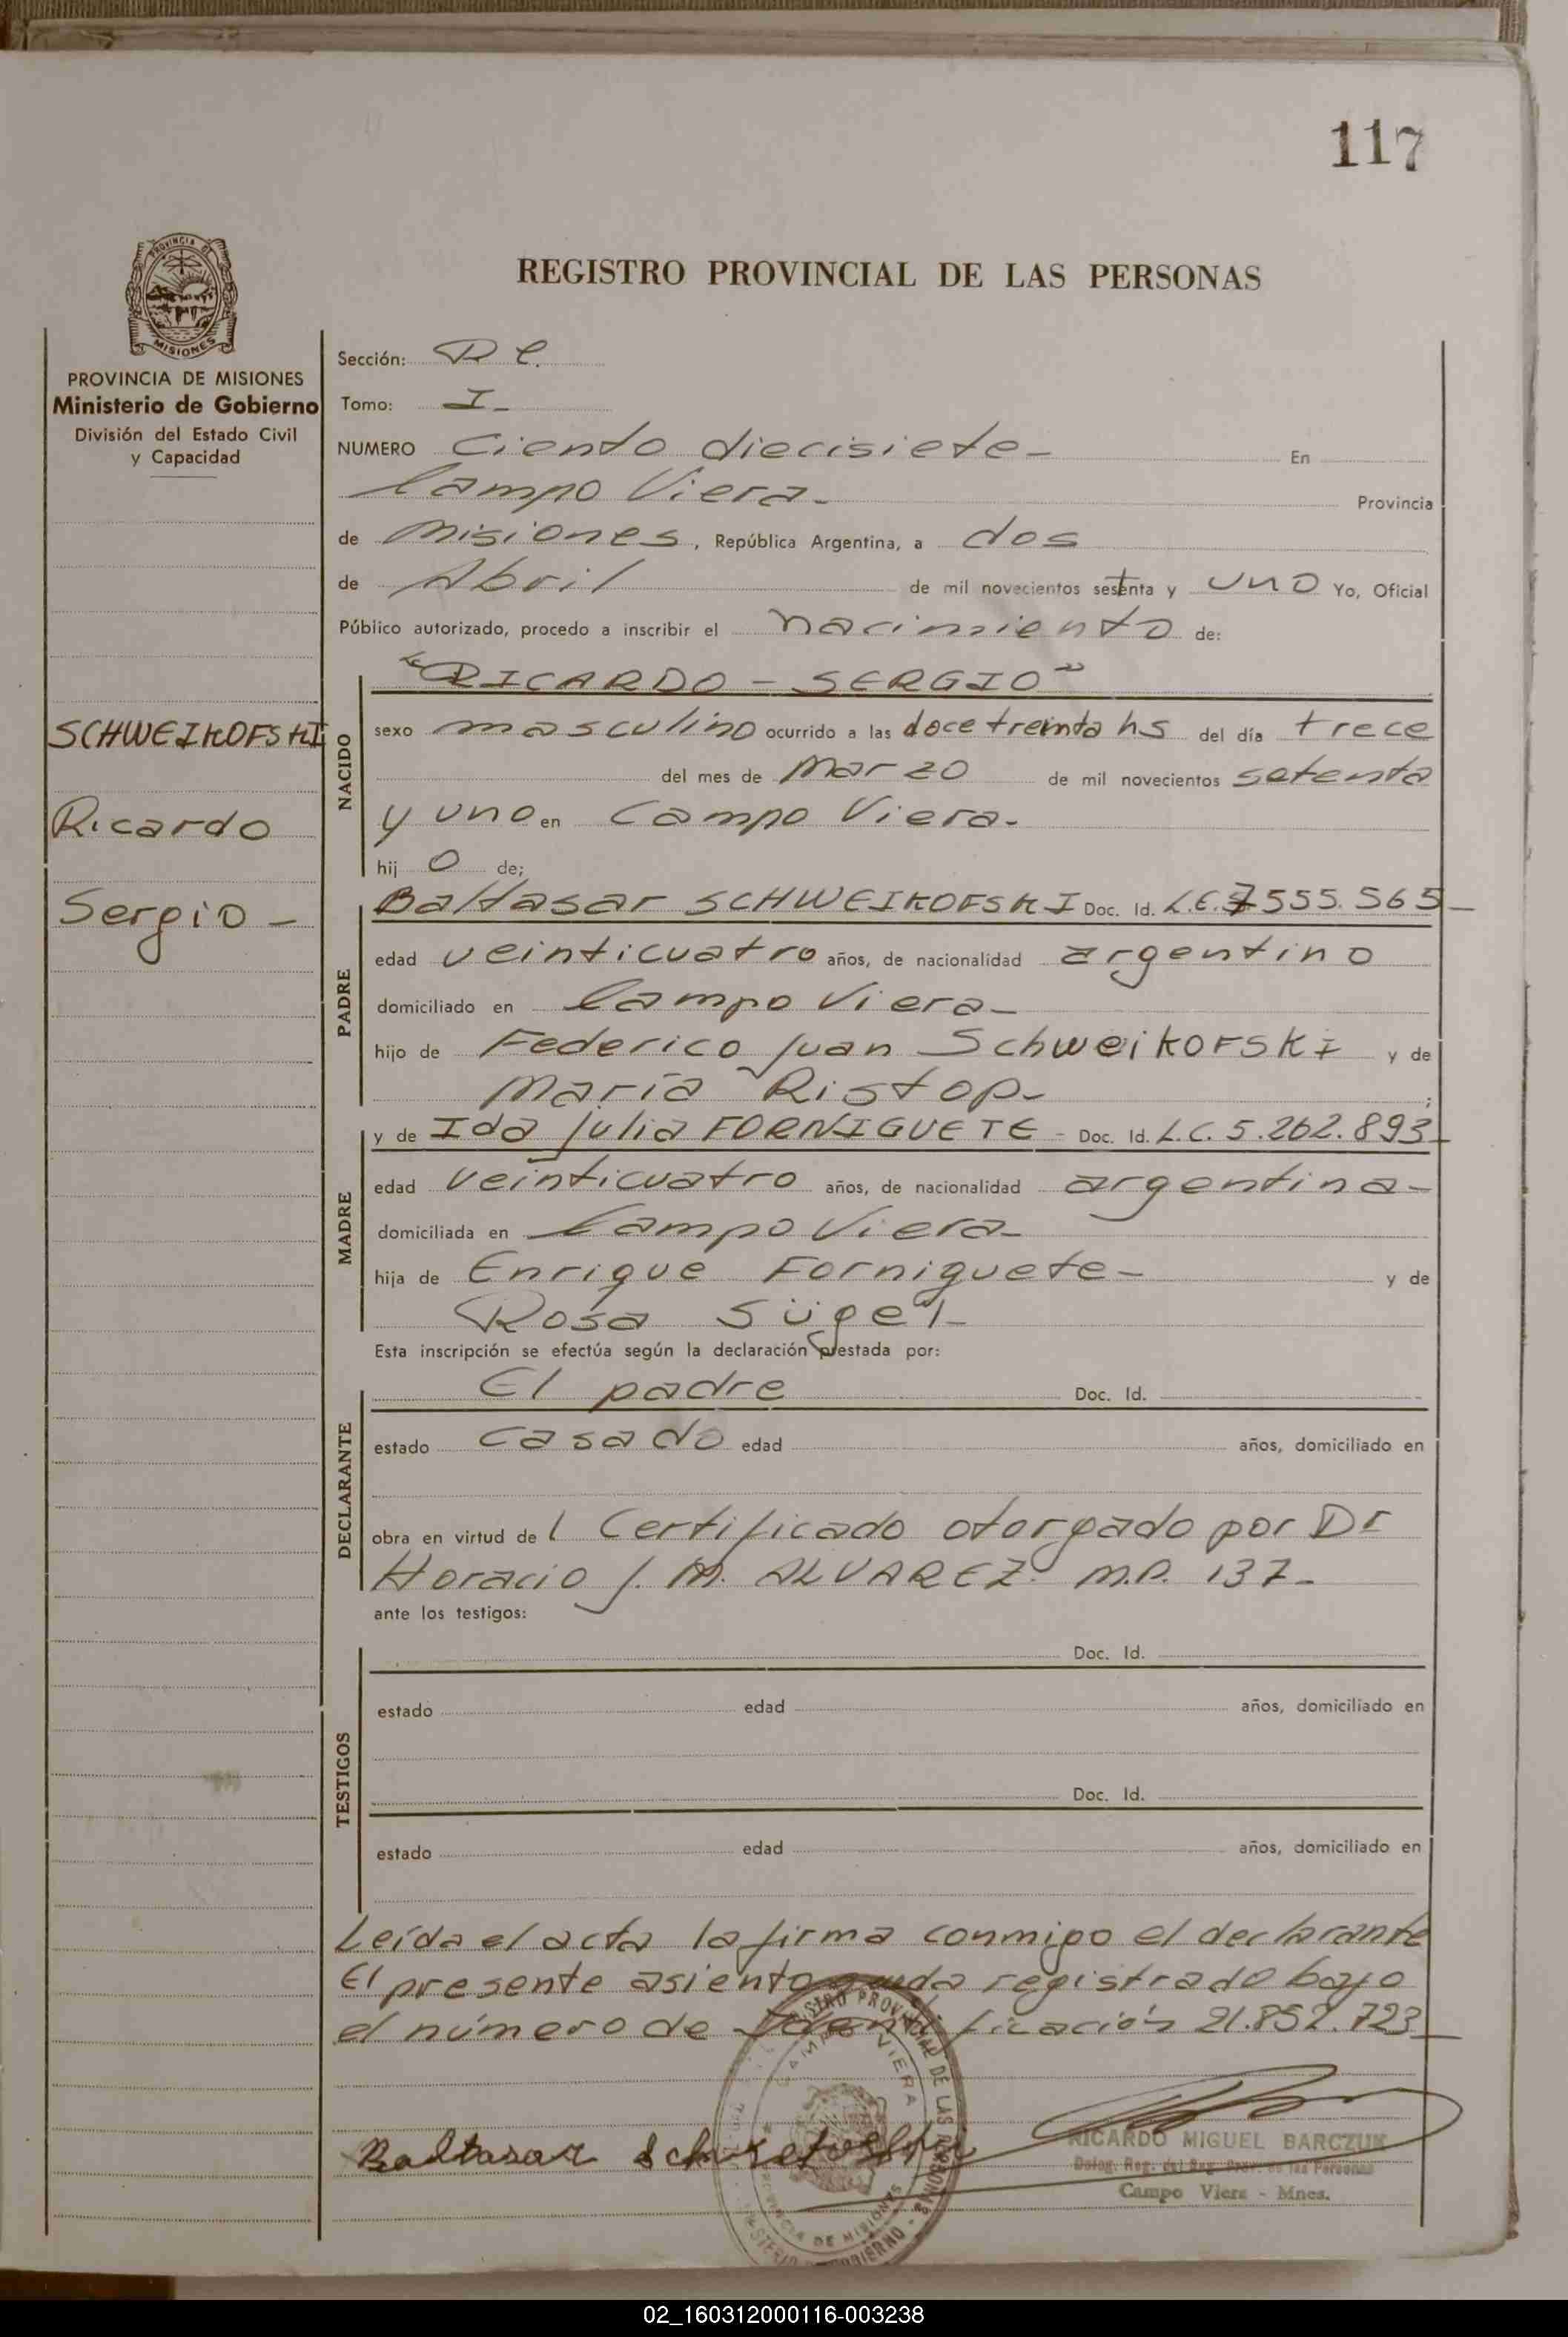 117
REGISTRO PROVINCIAL DE LAS PERSONAS
PROVINCIA DE MISIONES
Ministerio de Gobierno
División del Estado Civil
y Capacidad
SCHWEIKOFSKI
Ricardo
Sergio -
Sección: D C.
Tomo: I-
NUMERO Ciento diecisiete- En
Campo Viera- Provincia
de Misiones, República Argentina, a dos
de Abril de mil novecientos setenta y uno Yo, Oficial
Público autorizado, procedo a inscribir el nacimiento de:
"RICARDO - SERGIO"
NACIDO
sexo masculino ocurrido a las doce treinta hs del día trece
del mes de Marzo de mil novecientos setenta
y uno en Campo Viera-
hij o de;
Baltasar SCHWEIKOFSKI Doc. Id. L.E. 7555.565-
PADRE
edad veinticuatro años, de nacionalidad argentino
domiciliado en Campo Viera-
hijo de Federico Juan Schweikofski y de
María Ristop- ;
y de Ida Julia FORNIGUETE - Doc. Id. L.C. 5.262.893-
MADRE
edad veinticuatro años, de nacionalidad argentina-
domiciliada en Campo Viera-
hija de Enrique Forniguete- y de
Rosa Sügel-
Esta inscripción se efectúa según la declaración prestada por:
El padre Doc. Id.
DECLARANTE
estado casado edad años, domiciliado en
obra en virtud de l Certificado otorgado por Dr
Horacio J. M. ALVAREZ. M.P. 137-
ante los testigos:
TESTIGOS
Doc. Id.
estado edad años, domiciliado en
Doc. Id.
estado edad años, domiciliado en
Leída el acta la firma conmigo el declarante
El presente asiento queda registrado bajo
el número de Identificación 21.852.723-
Baltasar
RICARDO MIGUEL BARCZUK
Deleg. Reg. del Reg. Prov. de las Personas
Campo Viera - Mnes.
REGISTRO PROVINCIAL DE LAS PERSONAS
CAMPO VIERA
PROVINCIA DE MISIONES
MINISTERIO DE GOBIERNO
02_160312000116-003238